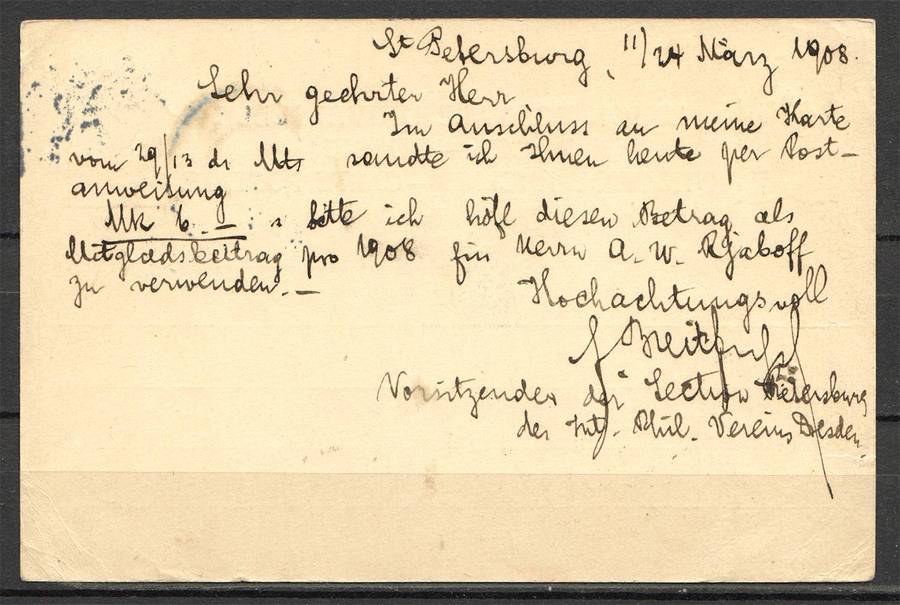 St Petersburg, 11/24 März 1908.
Sehr geehrter Herr
Im Anschluss an meine Karte
vom 29/13 ds Mts sandte ich Ihnen heute per Post-
anweisung
Mk 6.— & bitte ich höfl diesen Betrag als
Mitgliedsbeitrag pro 1908 für Herrn A. W. Rjaboff
zu verwenden.—
Hochachtungsvoll
Vorsitzender der Section Petersburg
des Int. Phil. Vereins Dresden